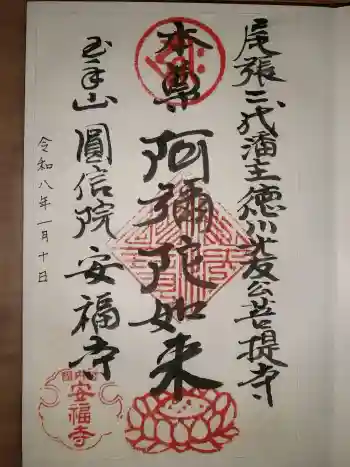 尾張二代藩主徳川光友公菩提寺
本尊 阿彌陀如来
玉手山 圓信院 安福寺
令和八年一月十日
河内国
安福寺